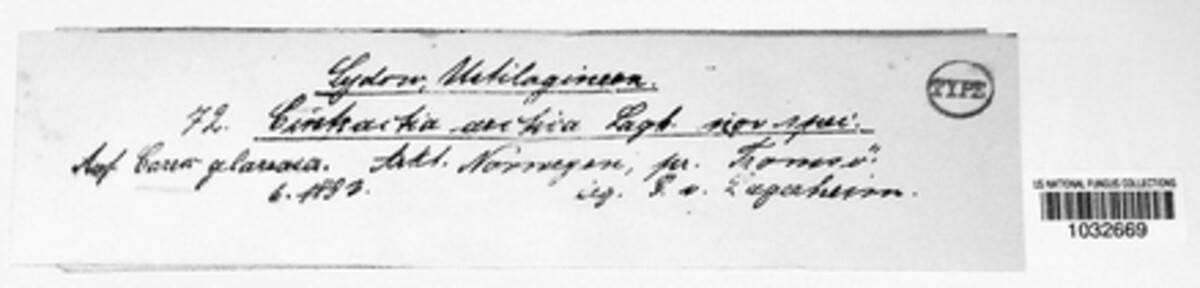 Sydow, Ustilagineen.
TYPE
72. Cintractia arctica Lagh. nov. spec.
Auf Carex glareosa. Arkt. Norwegen, pr. Tromsö.
6. 1892. leg. G. v. Lagerheim.
US NATIONAL FUNGUS COLLECTIONS
1032669